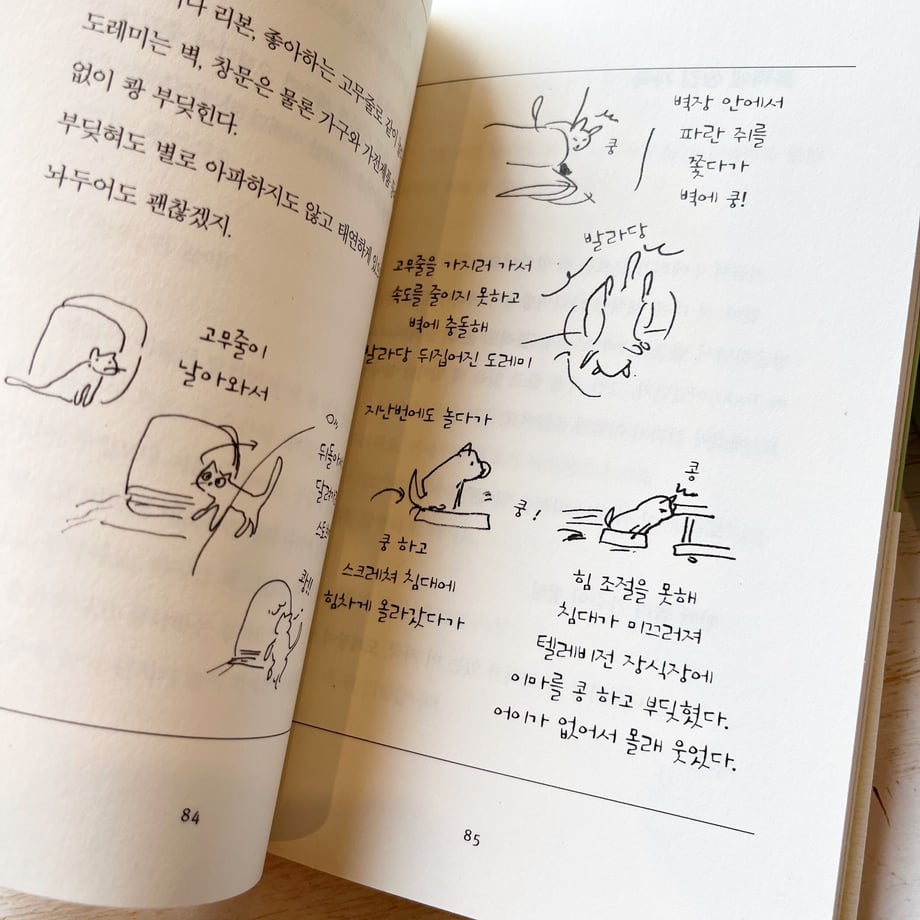 리본, 좋아하는 고무줄로 같이
도레미는 벽, 창문은 물론 가구와 가전제품
없이 쾅 부딪힌다.
부딪혀도 별로 아파하지도 않고 태연하게
놔두어도 괜찮겠지.
고무줄이
날아와서
쾅!!
84
벽장 안에서
파란 쥐를
쫓다가
벽에 쿵!
쿵
발라당
고무줄을 가지러 가서
속도를 줄이지 못하고
벽에 충돌해
발라당 뒤집어진 도레미
지난번에도 놀다가
쿵!
쿵 하고
스크레쳐 침대에
힘차게 올라갔다가
콩
힘 조절을 못해
침대가 미끄러져
텔레비전 장식장에
이마를 콩 하고 부딪혔다.
어이가 없어서 몰래 웃었다.
85